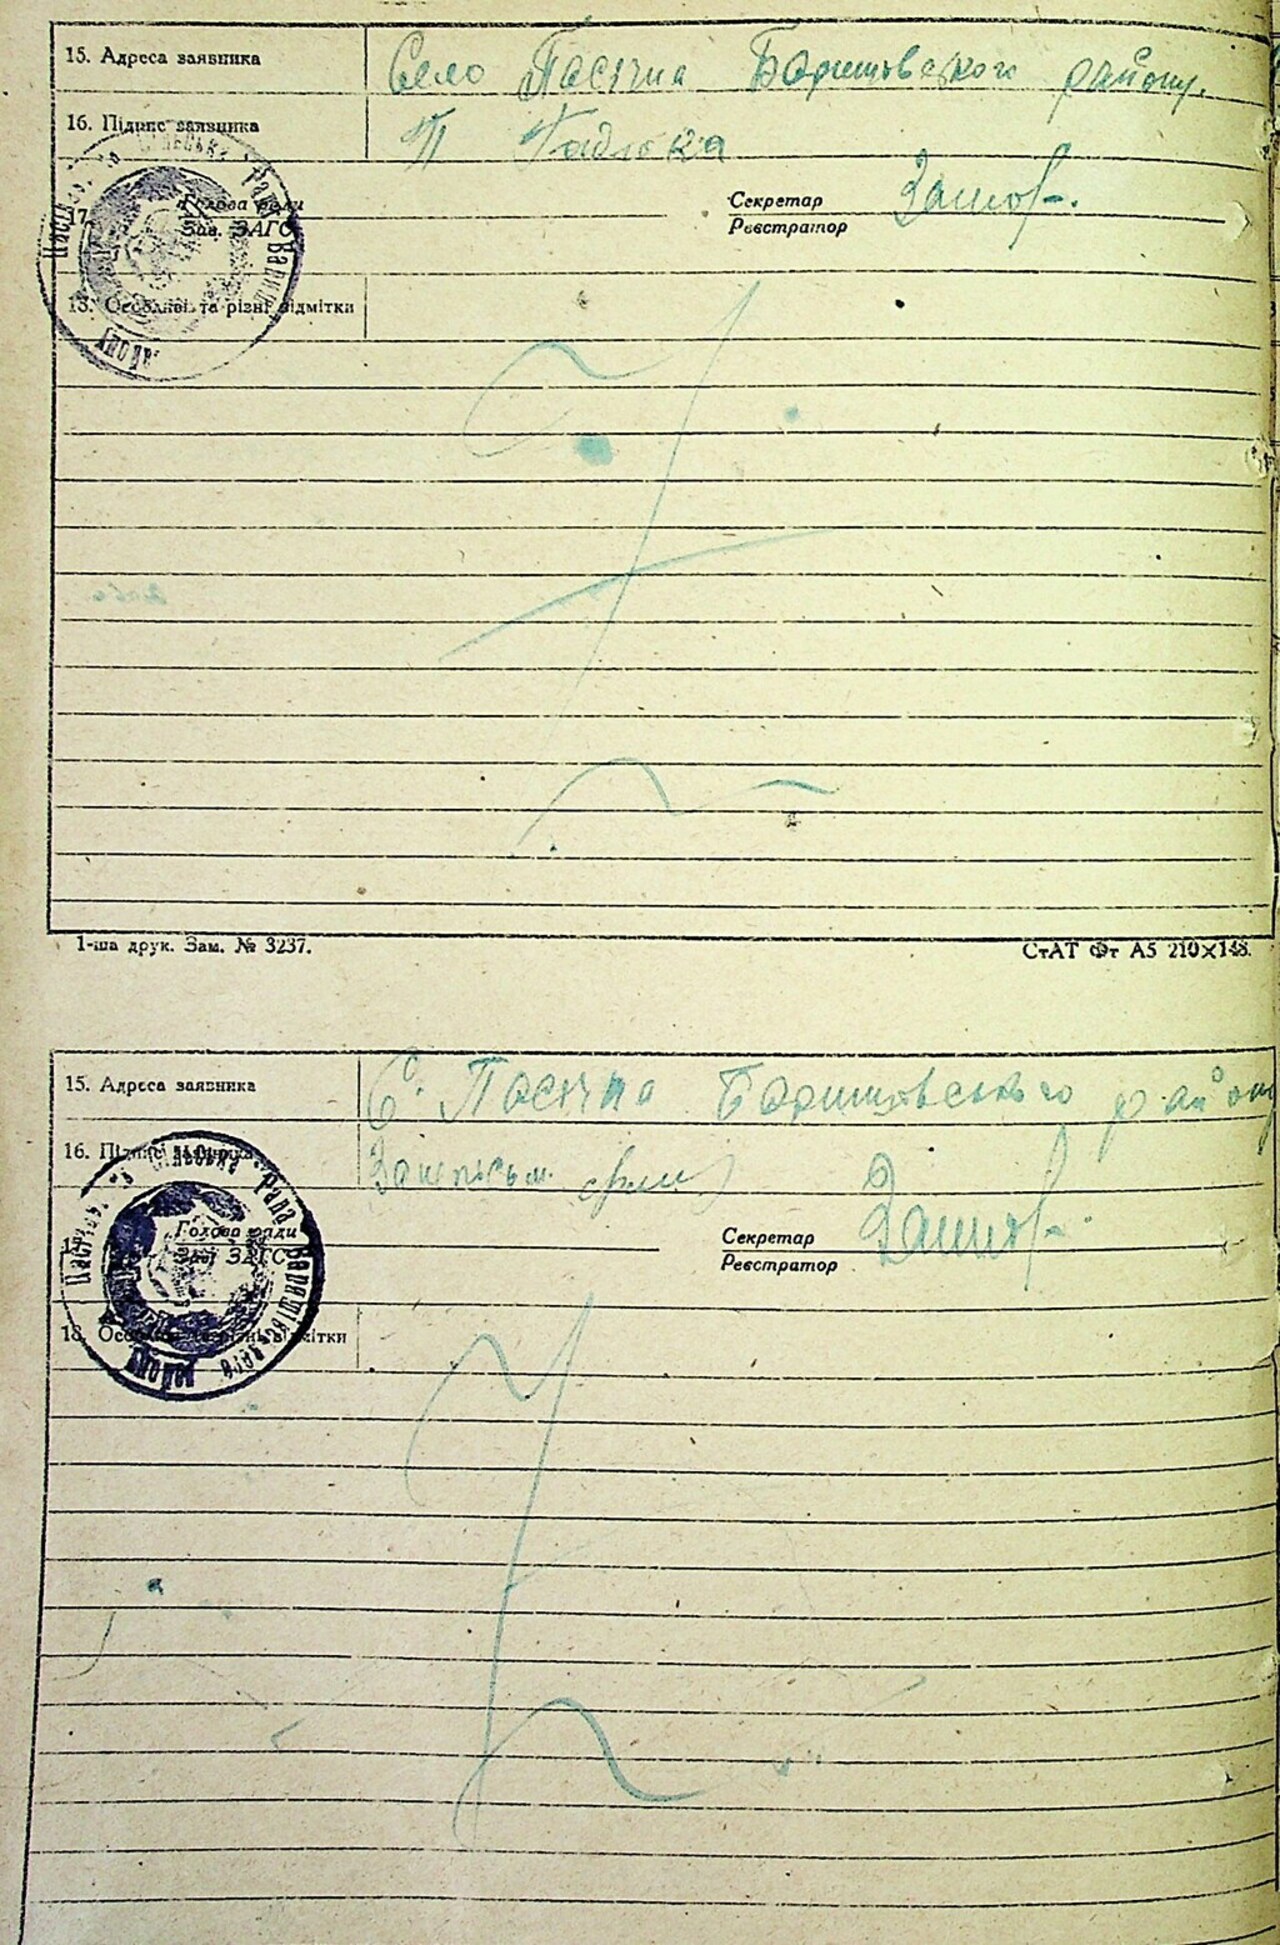 15. Адреса заявника Село Пасічна Баришовського району.
16. Підпис заявника П Гадюка
17. Голова ради
Зав. ЗАГС
Секретар
Реєстратор
18. Особливі та різні відмітки
1-ша друк. Зам. № 3237. СтАТ Фт А5 210×148.
15. Адреса заявника С. Пасічна Баришовського району
16. Підпис заявника
17. Голова ради
Зав. ЗАГС
Секретар
Реєстратор
18. Особливі та різні відмітки